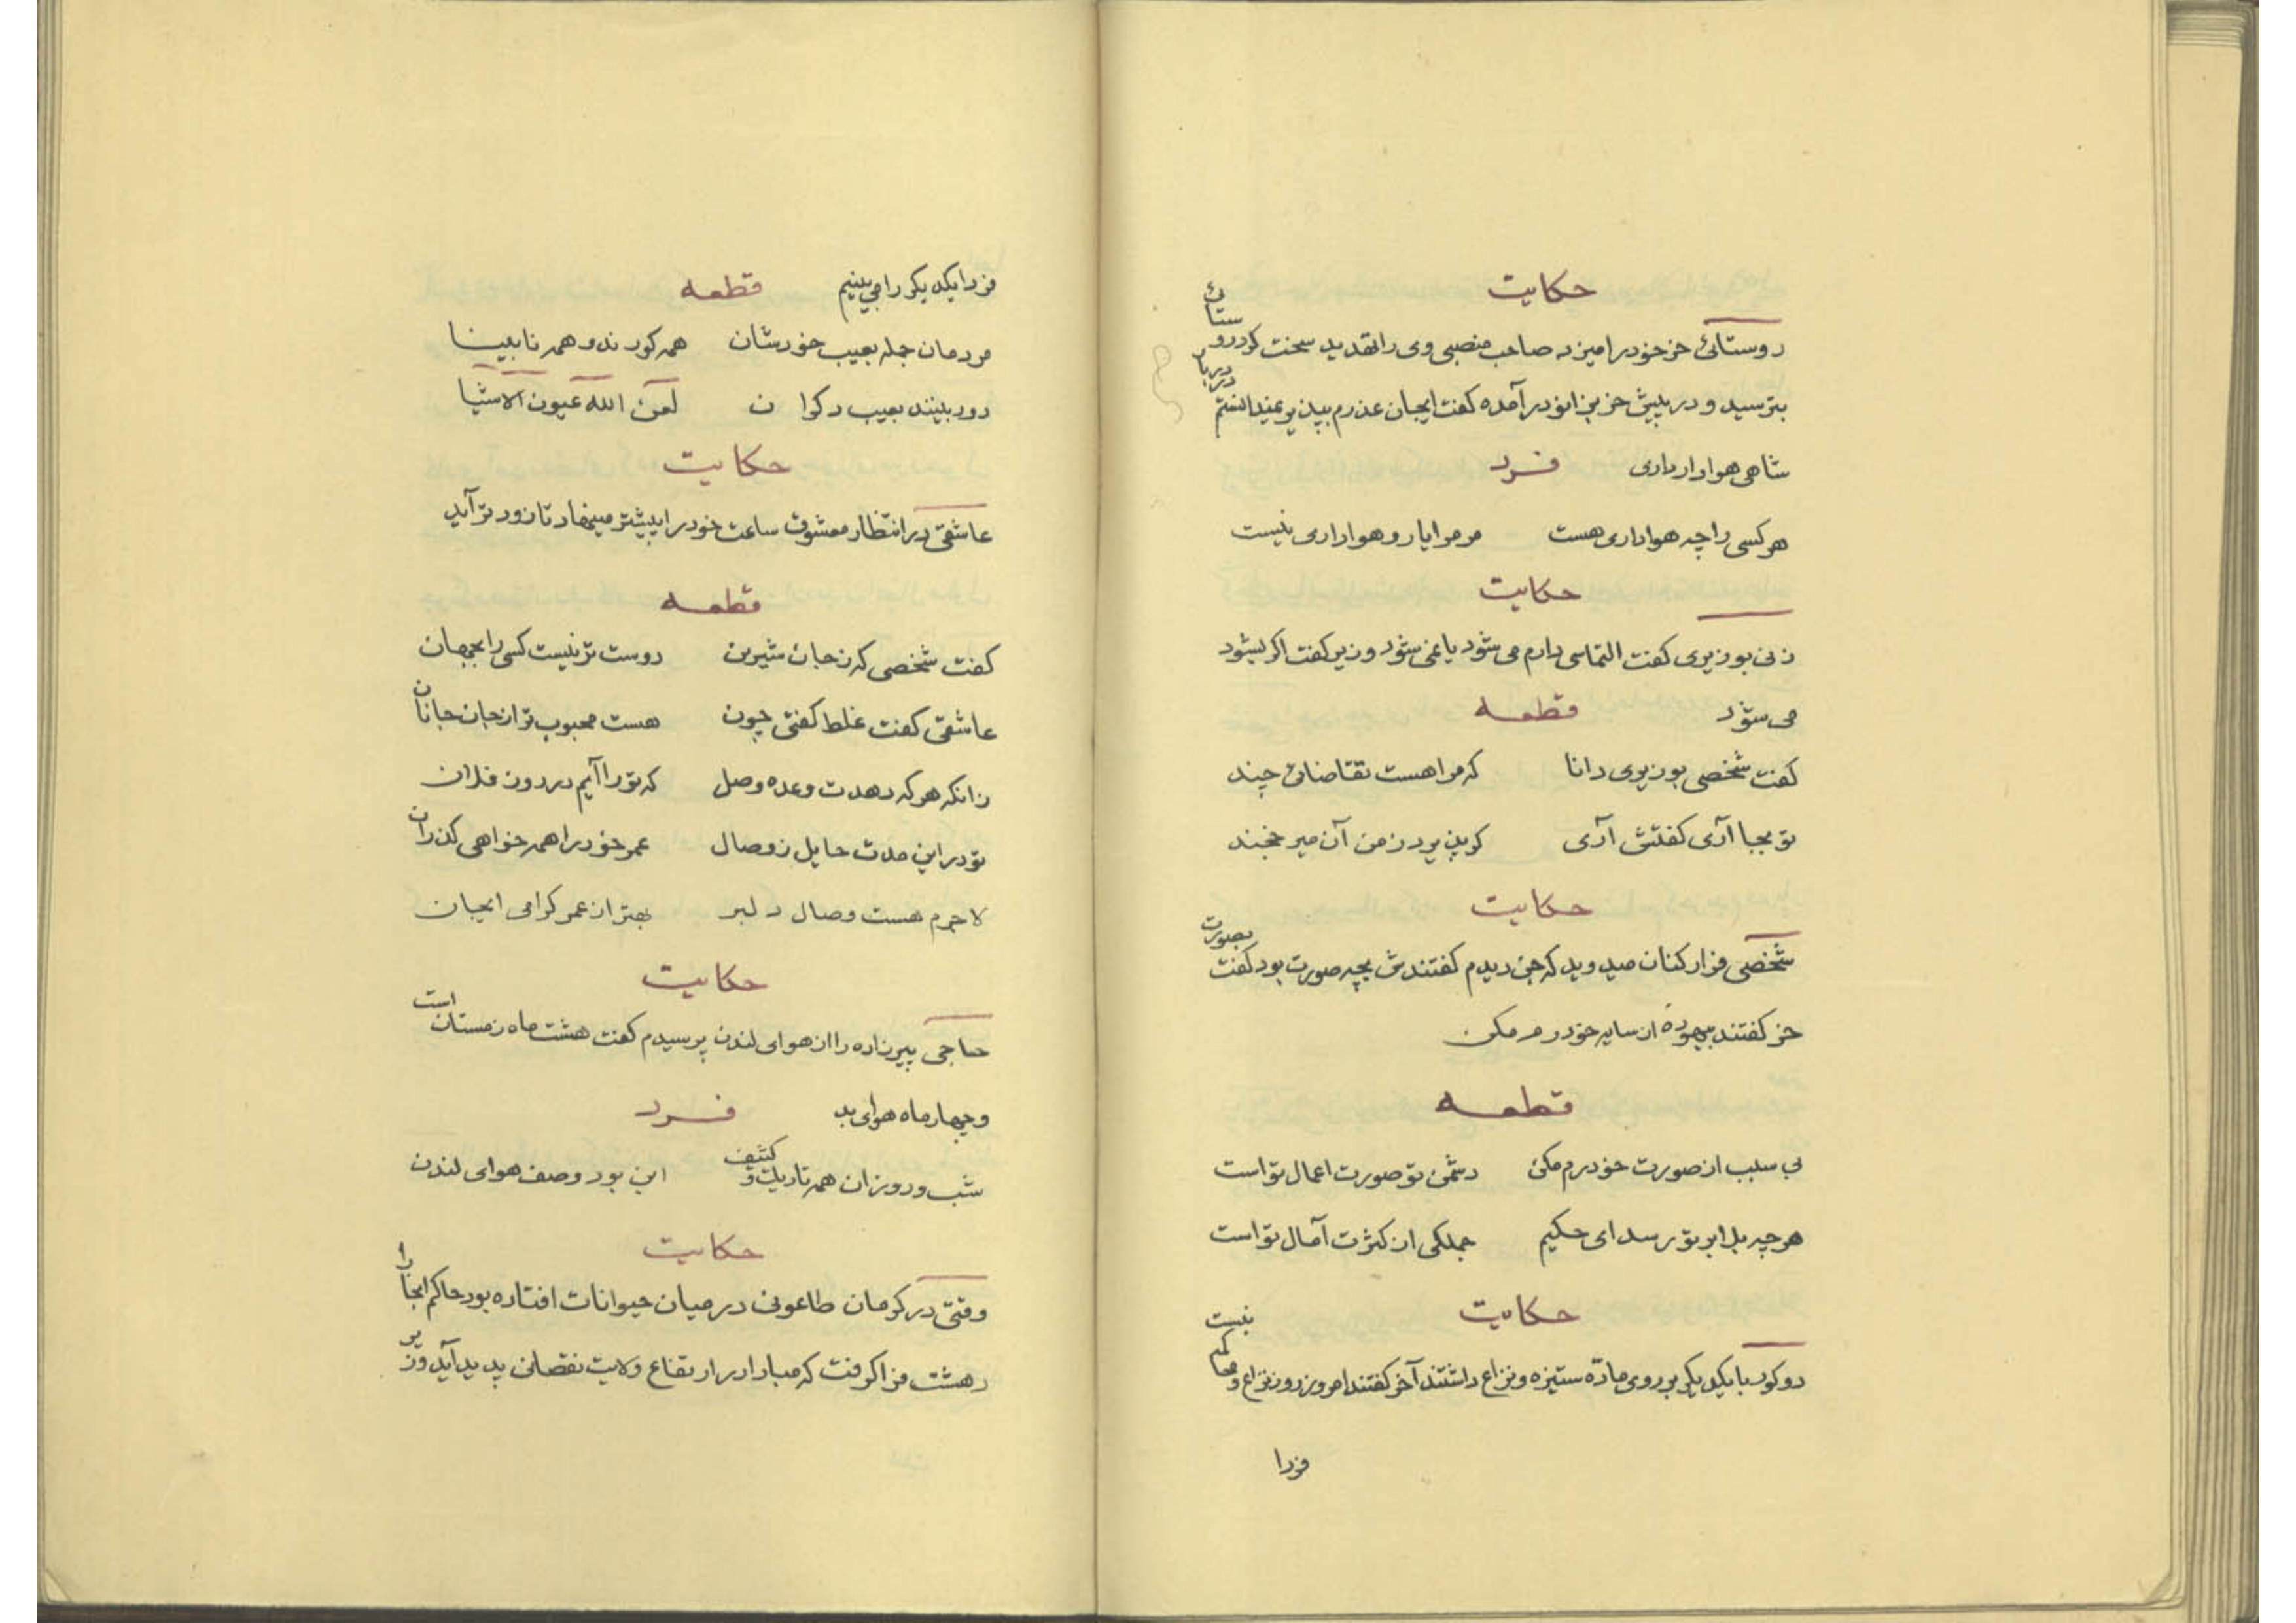 حکایت
روستائی خر خود را میزد صاحب منصبی وی را تهدید سخت کرد روستائی
بترسید و در پیش خر بزانو درآمده گفت ایجان عذرم بپذیر نمیدانستم در دربار
شاهی هوادار داری فرد
هر کسی را چه هواداری هست مر مرا یار و هواداری نیست
حکایت
زنی بوزیری گفت التماسی دارم می شود یا نمی شود وزیر گفت اگر بشود
می شود قطعه
گفت شخصی بوزیری دانا که مرا هست تقاضائی چند
تو بجا آری گفتش آری گر پذیرد ز من آن میر خجند
حکایت
شخصی فرار کنان میدوید که جن دیدم گفتندش بچه صورت بود گفت بصورت
خر گفتند بیهوده از سایه خود رم مکن
قطعه
بی سبب از صورت خود رم مکن دشمن تو صورت اعمال تو است
هر چه بلا بر تو رسد ای حکیم جملگی از کثرت آمال تو است
حکایت
دو کور با یکدیگر بر روی مادّه ستیزه و نزاع داشتند آخر گفتند امروز روز نزاع و محاکمه نیست
فردا
فردا یکدیگر را می بینیم قطعه
مردمان جمله بعیب خودشان همه کورند و همه نابینا
دور بینند بعیب دکران لعن الله عیون الاشیا
حکایت
عاشقی در انتظار معشوق ساعت خود را پیشتر مینهاد تا زودتر آید
قطعه
گفت شخصی که ز جان شیرین دوست تر نیست کسی را بجهان
عاشقی گفت غلط گفتی چون هست محبوب تر از جان جانان
زانکه هر که دهدت وعده وصل که تو را آیم در دون فلان
تو در این مدت حایل ز وصال عمر خود را همه خواهی گذران
لاجرم هست وصال دلبر بهتر از عمر گرامی ایجان
حکایت
حاجی پیرزاده را از هوای لندن پرسیدم گفت هشت ماه زمستان است
و چهار ماه هوای بد فرد
شب و روزان همه تاریک و کثیف این بود وصف هوای لندن
حکایت
وقتی در کرمان طاعونی در میان حیوانات افتاده بود حاکم انجا را
دهشت فرا گرفت که مبادا در ارتفاع ولایت نقصانی پدید آید وزیر